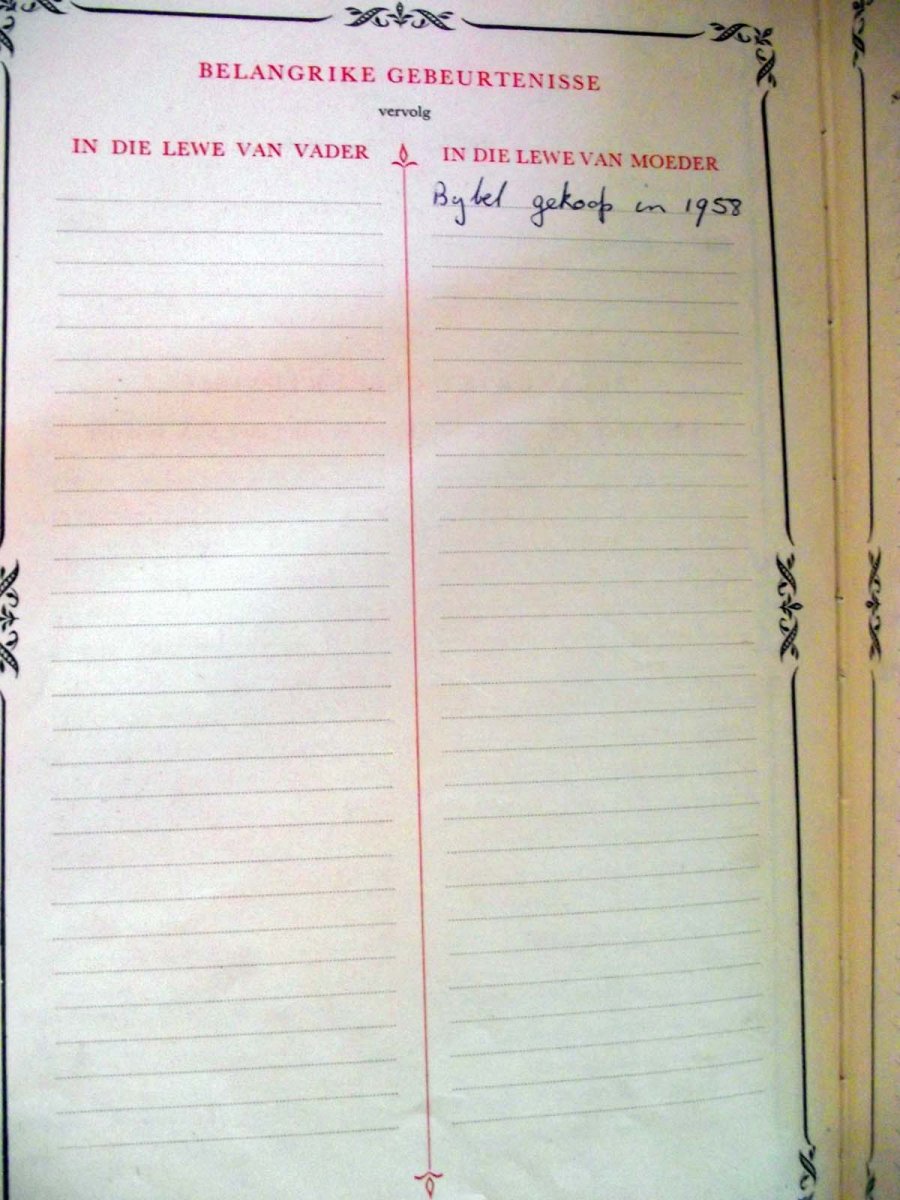 BELANGRIKE GEBEURTENISSE
vervolg
IN DIE LEWE VAN VADER
IN DIE LEWE VAN MOEDER
Bybel gekoop in 1958